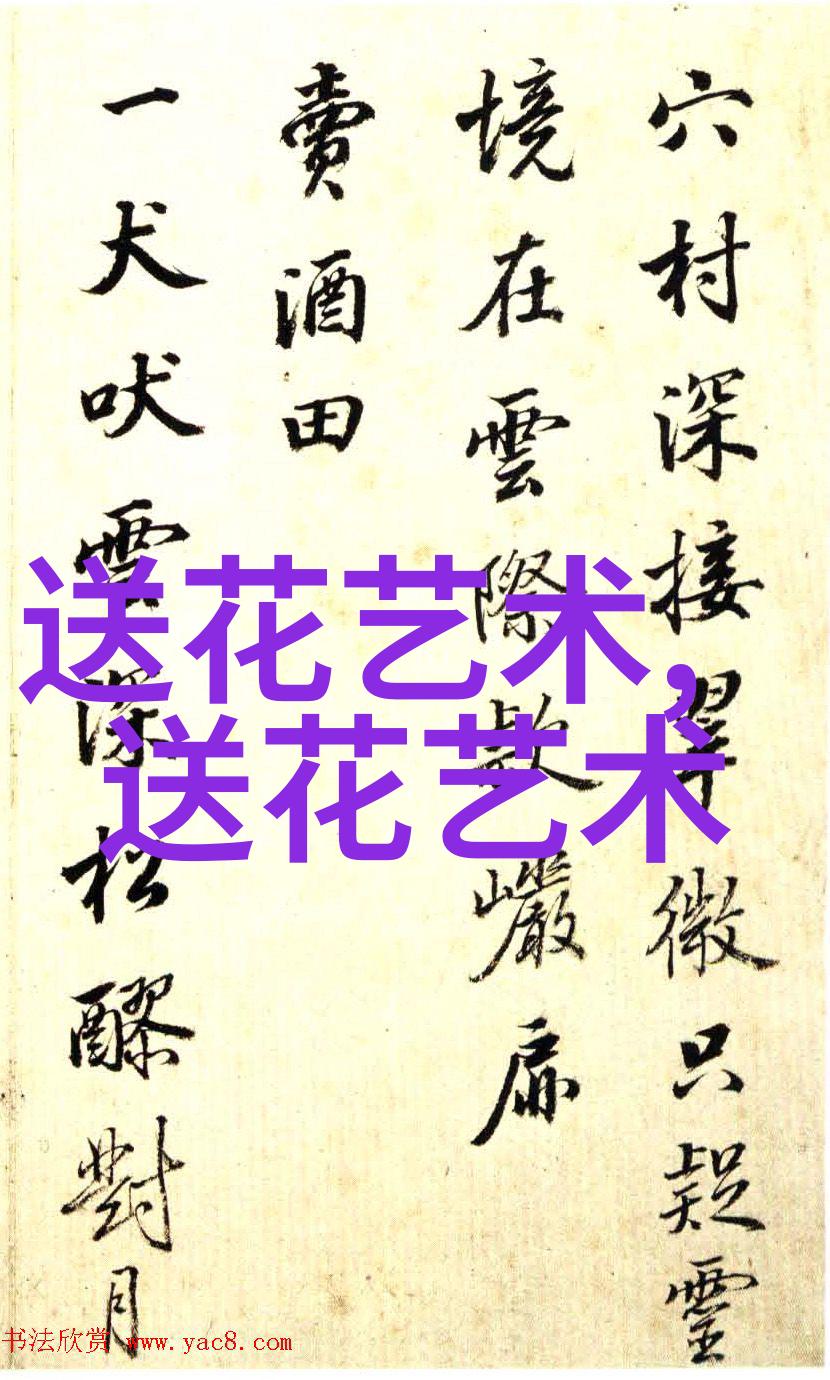 穴村深接翠微只疑靈
境在雲際欵巖扉
賣酒田
一犬吠雲深松醪對月
送花艺术,
送花艺术
书法欣赏 www.yac8.com